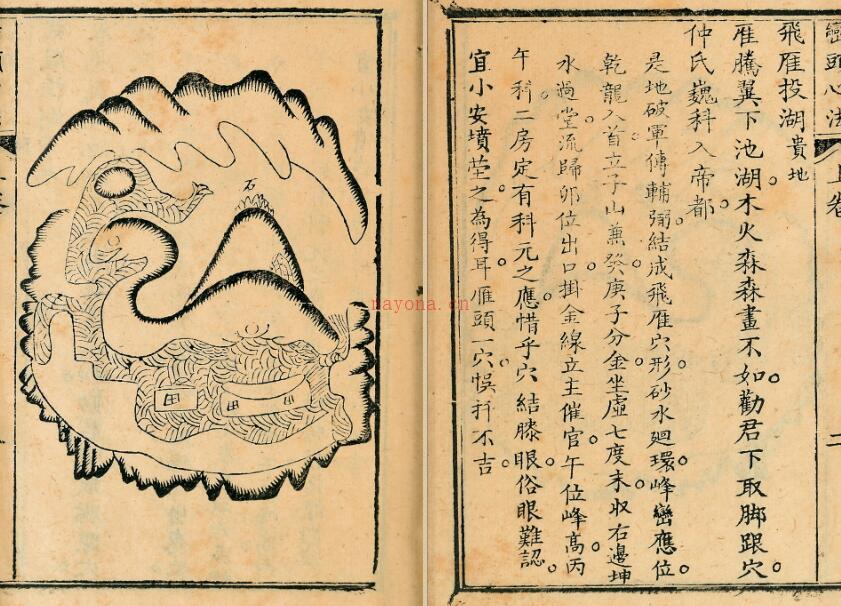 巒頭心法
上卷
二
飛雁投湖貴地
雁騰翼下池湖木火森森畫不如勸君下取脚跟穴
仲氏巍科入帝都
是地破軍傳輔弼結成飛雁穴形砂水廻環峰巒應位
乾龍入首立子山兼癸庚子分金坐虛七度未収右邊坤
水過堂流歸卯位出口掛金線立主催官午位峰高丙
午科二房定有科元之應惜乎穴結膝眼俗眼難認
宜小安墳塋之為得耳雁頭一穴悮扦不吉
石
田
田
田
nayona.cn